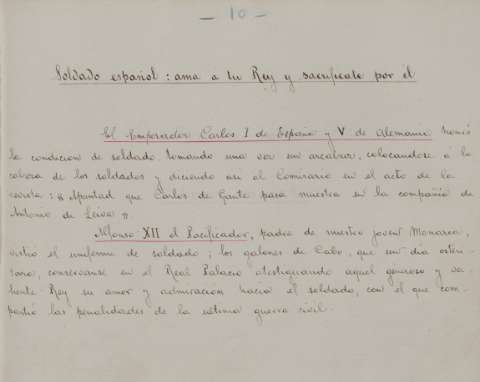 — 10 —
Soldado español: ama a tu Rey y sacrifícate por él
El Emperador Carlos I de España y V de Alemania honró
la condición de soldado, tomando una vez un arcabuz, colocandose á la
cabeza de los soldados y diciendo así al Comisario en el acto de la
revista: "Apuntad que Carlos de Gante pasa muestra en la compañía de
Antonio de Leiva".
Alfonso XII el Pacificador, padre de nuestro joven Monarca,
vistió el uniforme de soldado; los galones de Cabo, que un día osten-
tara, consérvanse en el Real Palacio atestiguando aquel generoso y va-
liente Rey su amor y admiración hacia el soldado, con el que com-
partió las penalidades de la última guerra civil.